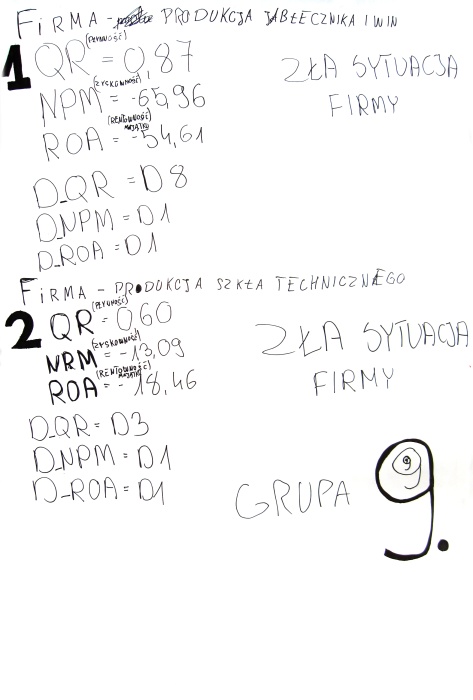 FiRMA - PRODUKCJA JABŁECZNIKA I WIN
1
(PŁYNNOŚĆ)
QR = 0,87
(ZYSKOWNOŚĆ)
NPM = -65,96
(RENTOWNOŚĆ MAJĄTKU)
ROA = -54,61
ZŁA SYTUACJA
FIRMY
D_QR = D8
D_NPM = D1
D_ROA = D1
FiRMA - PRODUKCJA SZKŁA TECHNICZNEGO
2
(PŁYNNOŚĆ)
QR = 0,60
(ZYSKOWNOŚĆ)
NRM = -13,09
(RENTOWNOŚĆ MAJĄTKU)
ROA = -18,46
ZŁA SYTUACJA
FIRMY
D_QR = D3
D_NPM = D1
D_ROA = D1
GRUPA 9.